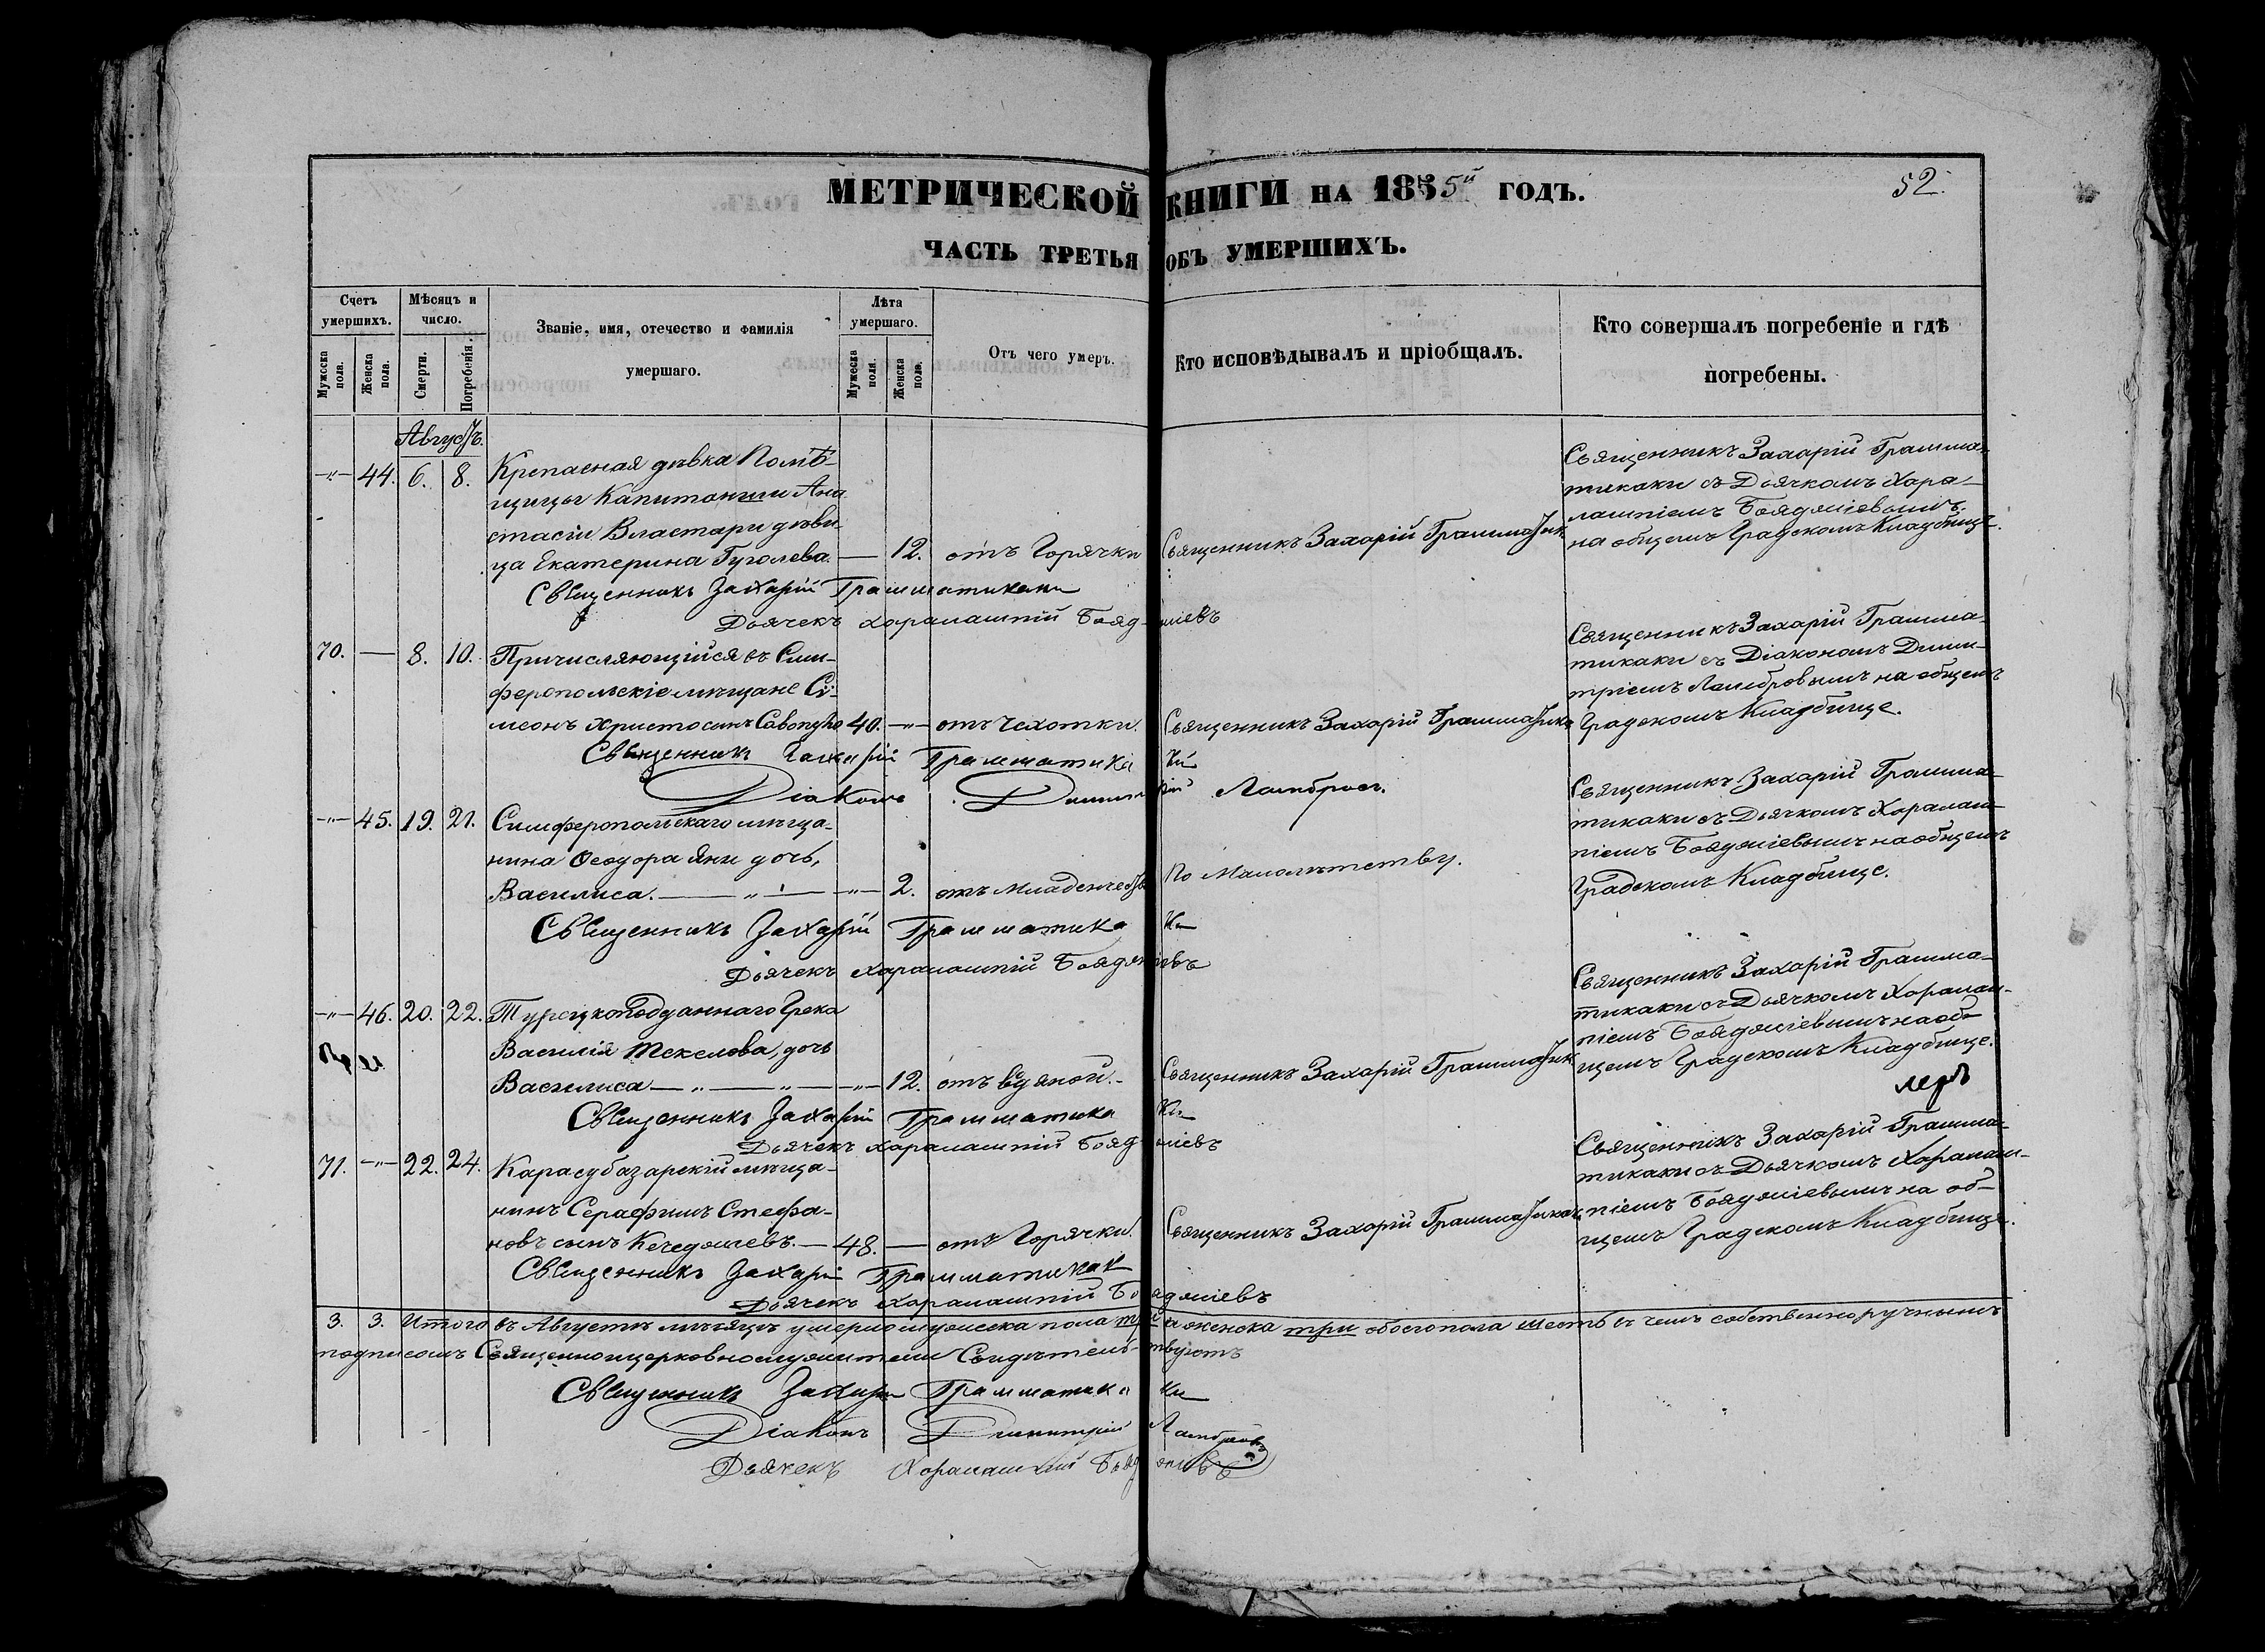 МЕТРИЧЕСКОЙ КНИГИ НА 1855й ГОДЪ.
52.
ЧАСТЬ ТРЕТЬЯ ОБЪ УМЕРШИХЪ.
Счетъ умершихъ.
Мужеска пола.
Женска пола.
Мѣсяцъ и число.
Смерти.
Погребенія.
Званіе, имя, отечество и фамилія
умершаго.
Лѣта умершаго.
Мужеска пола.
Женска пола.
Отъ чего умеръ.
Кто исповѣдывалъ и пріобщалъ.
Кто совершалъ погребеніе и гдѣ
погребены.
Августъ.
—"— 44. 6. 8. Крепасная дѣвка Помѣ-
щицы Капитанши Ана
стасіи Властари дѣви-
ца Екатерина Гуголева. — 12. отъ Горячки Священникъ Захарій Грамматик
Священникъ Захарій Грамма-
тикаки съ Дьячкомъ Хара-
лампіемъ Бояджіевымъ.
на общемъ Градскомъ Кладбище.
Священникъ Захарій Грамматикаки
Дьячекъ Харалампій Бояджіевъ
70. — 8. 10. Причисляющійся въ Сим-
феропольскіе мѣщане Си-
меонъ Христо сынъ 40. —"— отъ Чехотки. Священникъ Захарій Грамматика
Священникъ Захарій Грамма-
тикаки съ Діакономъ Дими-
тріемъ Ламбровымъ на общемъ
Градскомъ Кладбище.
Священникъ Захарій Грамматикаки
Діаконъ Димитрій Ламбровъ.
—"— 45. 19. 21. Симферопольскаго мѣща-
нина Ѳеодора Яни дочь,
Василиса. — " — —"— 2. отъ Младенчества По Малолѣтству.
Священникъ Захарій Грамма-
тикаки съ Дьячкомъ Харалам-
піемъ Бояджіевымъ на общемъ
Градскомъ Кладбище.
Священникъ Захарій Грамматикаки
Дьячекъ Харалампій Бояджіевъ
—"— 46. 20. 22. Турецкоподданнаго Грека
Василія Текелова, дочь
Василиса — " — " — —"— 12. отъ водяной. Священникъ Захарій Грамматик
Священникъ Захарій Грамма-
тикаки съ Дьячкомъ Харалам-
піемъ Бояджіевымъ на об-
щемъ Градскомъ Кладбище.
Священникъ Захарій Грамматикаки
Дьячекъ Харалампій Бояджіевъ
71. —"— 22. 24. Карасубазарскій мѣща-
нинъ Серафимъ Стефа-
новъ сынъ Кечеджіевъ. — 48. — отъ Горячки. Священникъ Захарій Грамматикак
Священникъ Захарій Грамма-
тикаки съ Дьячкомъ Харалам-
піемъ Бояджіевымъ на об-
щемъ Градскомъ Кладбище.
Священникъ Захарій Грамматикак
Дьячекъ Харалампій Бояджіевъ
3. 3. Итого въ Августѣ мѣсяцѣ умерло мужеска пола три а женска три обоего пола шесть въ чемъ собственноручнымъ
подписомъ Священноцерковнослужители Свидѣтельствуютъ
Священникъ Захарій Грамматикаки
Діаконъ Димитрій Ламбровъ
Дьячекъ Харалампій Бояджіевъ